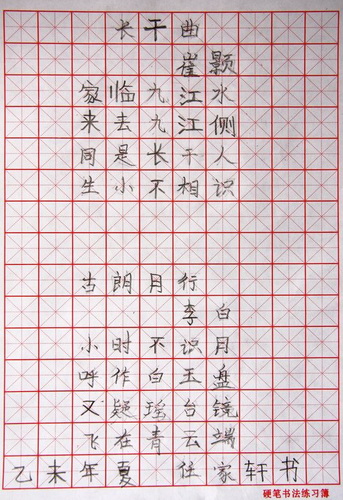 长干曲
崔颢
家临九江水
来去九江侧
同是长干人
生小不相识
古朗月行
李白
小时不识月
呼作白玉盘
又疑瑶台镜
飞在青云端
乙未年夏 任家轩书
硬笔书法练习簿